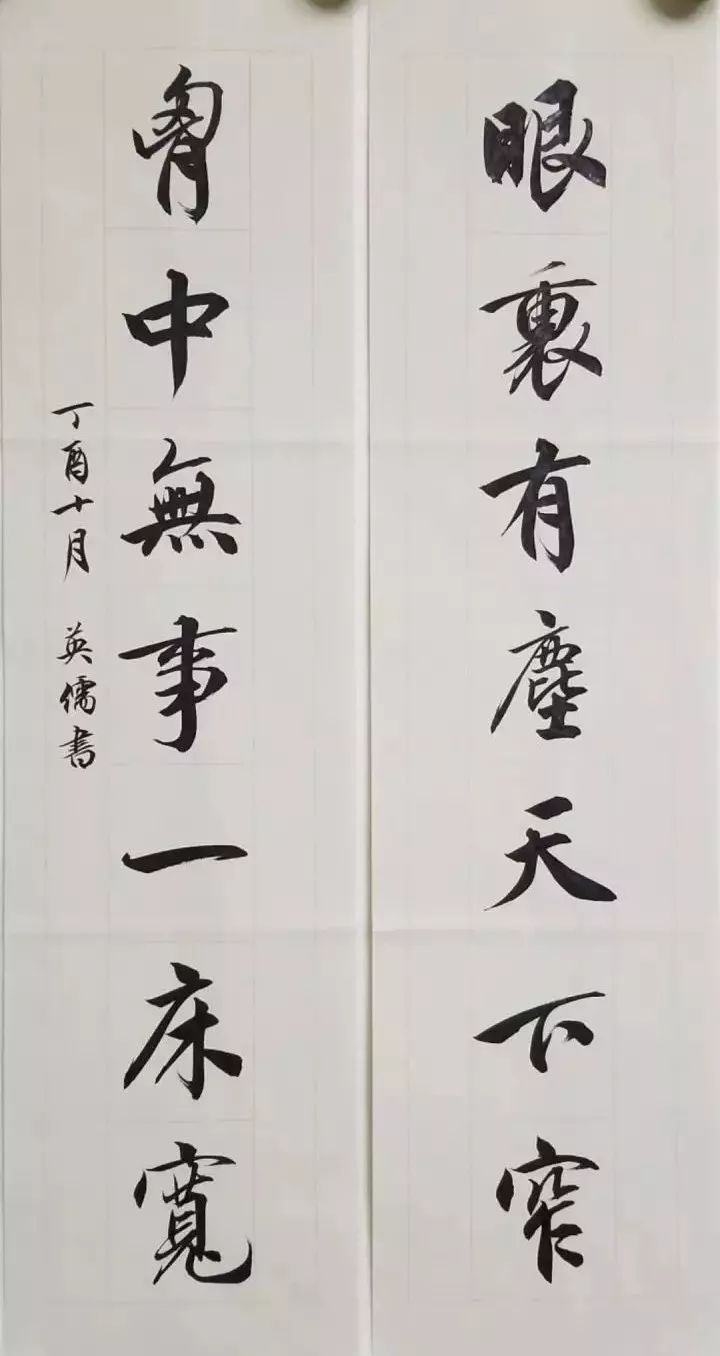 眼裏有塵天下窄
胷中無事一床寬
丁酉十月 英儒書